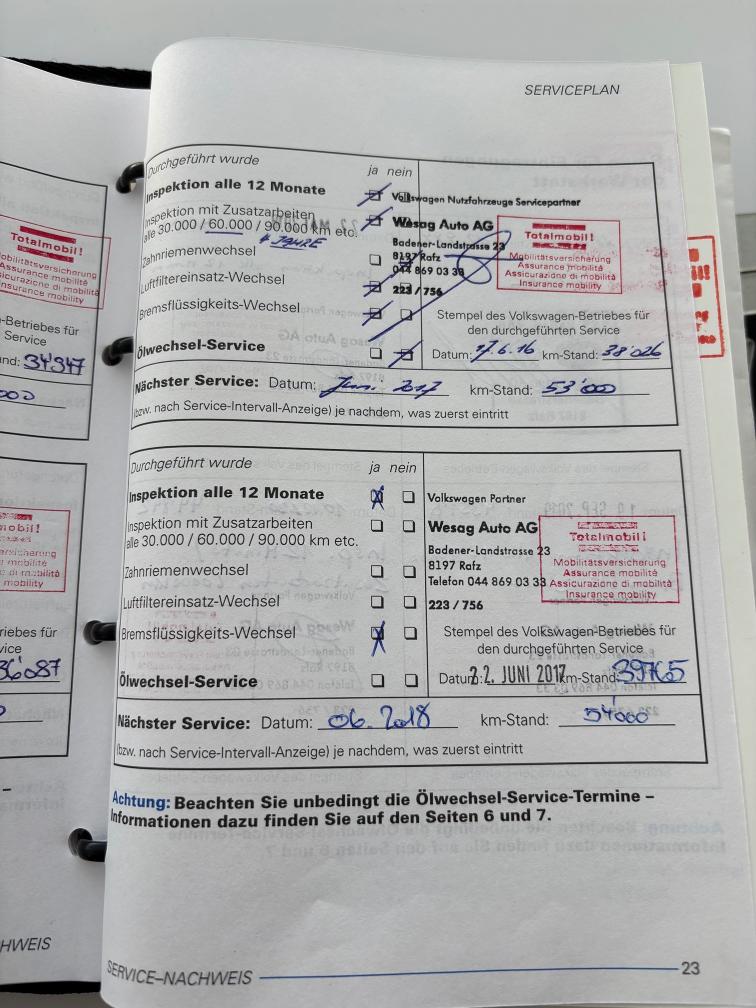 SERVICEPLAN
Durchgeführt wurde
ja nein
Inspektion alle 12 Monate
Inspektion mit Zusatzarbeiten
alle 30.000 / 60.000 / 90.000 km etc.
Zahnriemenwechsel
Luftfiltereinsatz-Wechsel
Bremsflüssigkeits-Wechsel
Ölwechsel-Service
Volkswagen Nutzfahrzeuge Servicepartner
Wesag Auto AG
Badener-Landstrasse 23
8197 Rafz
044 869 03 33
223 / 756
Totalmobil!
Mobilitätsversicherung
Assurance mobilité
Assicurazione di mobilità
Insurance mobility
Stempel des Volkswagen-Betriebes für
den durchgeführten Service
Datum: 17.6.16 km-Stand: 38'026
Nächster Service: Datum: Jun. 2017 km-Stand: 53'000
(bzw. nach Service-Intervall-Anzeige) je nachdem, was zuerst eintritt
Durchgeführt wurde
ja nein
Inspektion alle 12 Monate
Inspektion mit Zusatzarbeiten
alle 30.000 / 60.000 / 90.000 km etc.
Zahnriemenwechsel
Luftfiltereinsatz-Wechsel
Bremsflüssigkeits-Wechsel
Ölwechsel-Service
Volkswagen Partner
Wesag Auto AG
Badener-Landstrasse 23
8197 Rafz
Telefon 044 869 03 33
223 / 756
Totalmobil!
Mobilitätsversicherung
Assurance mobilité
Assicurazione di mobilità
Insurance mobility
Stempel des Volkswagen-Betriebes für
den durchgeführten Service
Datum: 22. JUNI 2017 km-Stand: 39765
Nächster Service: Datum: 06. 2018 km-Stand: 54'000
(bzw. nach Service-Intervall-Anzeige) je nachdem, was zuerst eintritt
Achtung: Beachten Sie unbedingt die Ölwechsel-Service-Termine –
Informationen dazu finden Sie auf den Seiten 6 und 7.
SERVICE–NACHWEIS
23
Totalmobil!
Mobilitätsversicherung
Assurance mobilité
Assicurazione di mobilità
Insurance mobility
-Betriebes für
Service
nd: 34'347
mobil!
mobilité
mobility
riebes für
vice
36'087
HWEIS